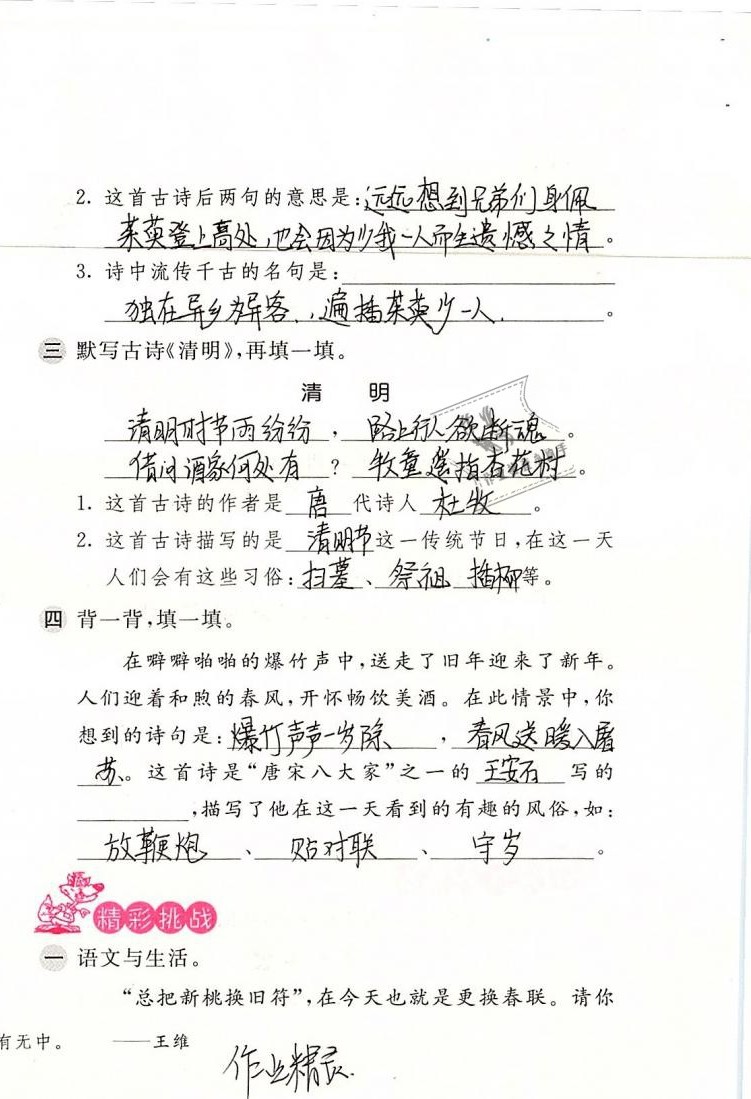 2. 这首古诗后两句的意思是:远远想到兄弟们身佩
茱萸登上高处,也会因为少我一人而生遗憾之情。
3. 诗中流传千古的名句是:
独在异乡为异客,遍插茱萸少一人。
三 默写古诗《清明》,再填一填。
清 明
清明时节雨纷纷,路上行人欲断魂。
借问酒家何处有?牧童遥指杏花村。
1. 这首古诗的作者是 唐 代诗人 杜牧 。
2. 这首古诗描写的是 清明节 这一传统节日,在这一天
人们会有这些习俗:扫墓、祭祖 插柳等。
四 背一背,填一填。
在噼噼啪啪的爆竹声中,送走了旧年迎来了新年。
人们迎着和煦的春风,开怀畅饮美酒。在此情景中,你
想到的诗句是:爆竹声声一岁除,春风送暖入屠
苏。这首诗是“唐宋八大家”之一的 王安石 写的
,描写了他在这一天看到的有趣的风俗,如:
放鞭炮、贴对联、守岁。
精彩挑战
一 语文与生活。
“总把新桃换旧符”,在今天也就是更换春联。请你
有无中。 ——王维
作业精灵